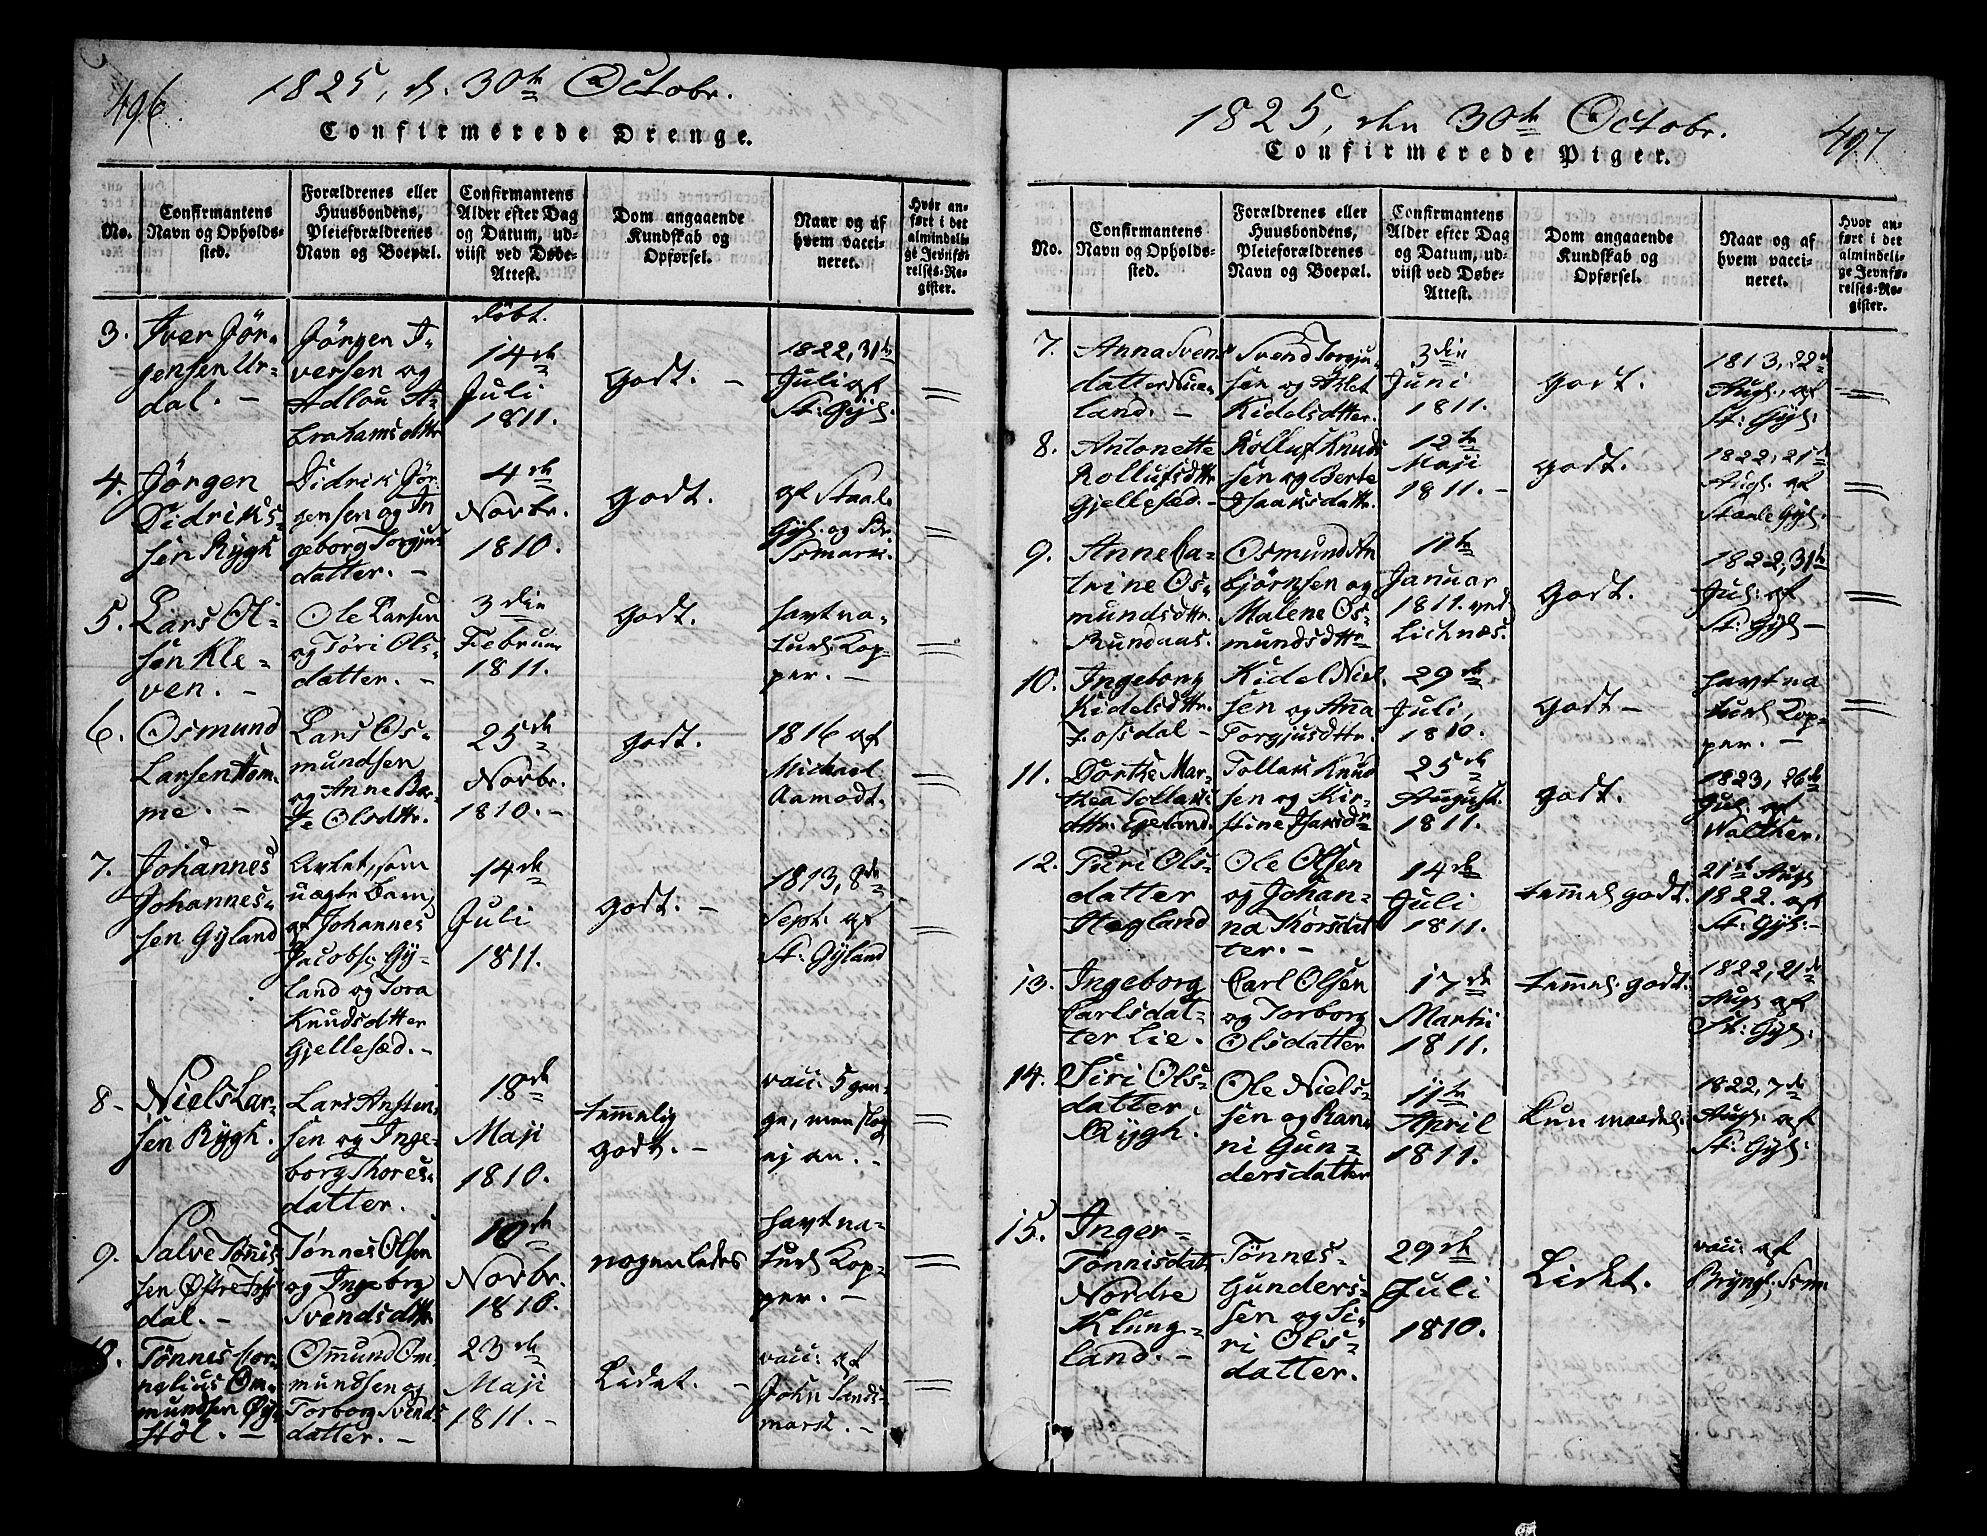 496.
1825, d. 30te Octobr.
Confirmerede Drenge.
No.
Confirmantens
Navn og Opholds-
sted.
Forældrenes eller
Huusbondens,
Pleieforældrenes
Navn og Boepæl.
Confirmantens
Alder efter Dag
og Datum, ud-
viist ved Døbe-
Attest.
Dom angaaende
Kundskab og
Opførsel.
Naar og af
hvem vacci-
neret.
Hvor an-
ført i det
almindeli-
ge Jevnfø-
relses-Re-
gister.
3.
Iver Jör-
gensen Ur-
dal. -
Jörgen I-
versen og
Adlou A-
brahamsdttr
döbt.
14de
Juli
1811.
godt. -
1822, 31te
Juli af
St: Gyl.
4.
Jörgen
Didriks-
sen Rygh
Didrik Jör-
gensen og In
geborg Torgius-
datter. -
4de
Novbr.
1810.
godt.
af Staale
Gyl. og Br.
Ssmark.
5.
Lars Ol-
sen Kle-
ven. -
Ole Larsen
og Töri Ols-
datter. -
3die
Februar
1811.
godt.
havt na-
turl. Kop-
per. -
6.
Osmund
Larsen Hom-
me. -
Lars Os-
mundsen
og Anne Ber-
te Olsdttr.
25de
Novbr.
1810. -
godt.
1816 af
Michael
Aamodt.
7.
Johannes
Johannes-
sen Gyland
Avlet, som
uægte Barn,
af Johannes
Jacobs. Gy-
land og Tora
Knudsdtter
Gjellesæd. -
14de
Juli
1811.
godt. -
1813, 8de
Sept: af
St: Gyland
8-
Niels Lar-
sen Rygh.
Lars Ansten-
sen og Inge-
borg Thores-
datter.
18de
Maji
1810.
temmelig
godt. -
vacc: 5 gan-
ge, men slog
ej an. -
9.
Salve Tönnis
sen Østre Foss
dal. -
Tönnes Olsen
og Ingeborg
Svendsdttr
10de
Novbr.
1810.
nogenledes
havt na-
turl. Kop-
per. -
10.
Tönnes Cor-
nelius Om-
mundsen Øy-
stöl. -
Ommund Om-
mundsen og
Torborg Svends
datter. -
23de
Maji
1811. -
Lidet. -
vacc: af
John Lands-
mark. -
1825, den 30te Octobr.
497
Confirmerede Piger.
No.
Confirmantens
Navn og Opholds-
sted.
Forældrenes eller
Huusbondens,
Pleieforældrenes
Navn og Boepæl.
Confirmantens
Alder efter Dag
og Datum, ud-
viist ved Døbe-
Attest.
Dom angaaende
Kundskab og
Opførsel.
Naar og af
hvem vacci-
neret.
Hvor an-
ført i det
almindeli-
ge Jevnfø-
relses-Re-
gister.
7.
Anna Svens
datter Nua-
land. -
Svend Torgiu-
sen og Aslet
Kidelsdtter.
3die
Juni
1811.
godt.
1813, 22d
Aug. af
St: Gyl.
8.
Antonette
Rollufsdttr
Gjellesæd. -
Rolluf Knuds
sen og Berte
Isaaksdattr.
12te
Maji
1811. -
godt.
1822, 21de
Aug. af
Staale Gyl.
9.
Anne Ca-
trine Os-
mundsdttr.
Rundaas.
Osmund An
björnsen og
Malene Os-
mundsdttr
11te
Januar
1811. ved
Lichnæs.
godt.
1822, 31te
Jul. af
St: Gyl -
10.
Ingeborg
Kidelsdttr.
Fossdal -
Kidel Niel-
sen og Anna
Torgjusdttr.
29de
Juli,
1810.
godt -
havt na
turl. Kop-
per. -
11.
Dorthe Mar-
thea Tollaks
dttr. Egeland.
Tollak Knud
sen og Kir-
stine
25de
August.
1811.
godt.
1823, 26de
Jul. af
Walther.
12.
Turi Ols-
datter
Hægland
Ole Olsen
og Johan-
na Thorsdat
ter. -
14de
Juli
1811.
temmel. godt.
21de Aug.
1822. af
St: Gyl: -
13.
Ingeborg
Carlsdat-
ter Lie.
Carl Olsen
og Torborg
Olsdatter
17de
Martii
1811.
temmel. godt.
1822, 21de
Aug. af
St: Gyl:
14.
Siri Ols-
datter
Rygh.
Ole Niels-
sen og Ran-
ni Gun-
dersdatter
11te
April
1811.
kun maadel.
1822, 7de
Aug. af
St: Gyl:
15.
Inger
Tönnisdatr
Nordre
Klung-
land. -
Tönnes
Gunders-
sen og Si-
ri Ols-
datter.
29de
Juli
1810.
Lidet.
vacc: af
Bryngl. Sem.